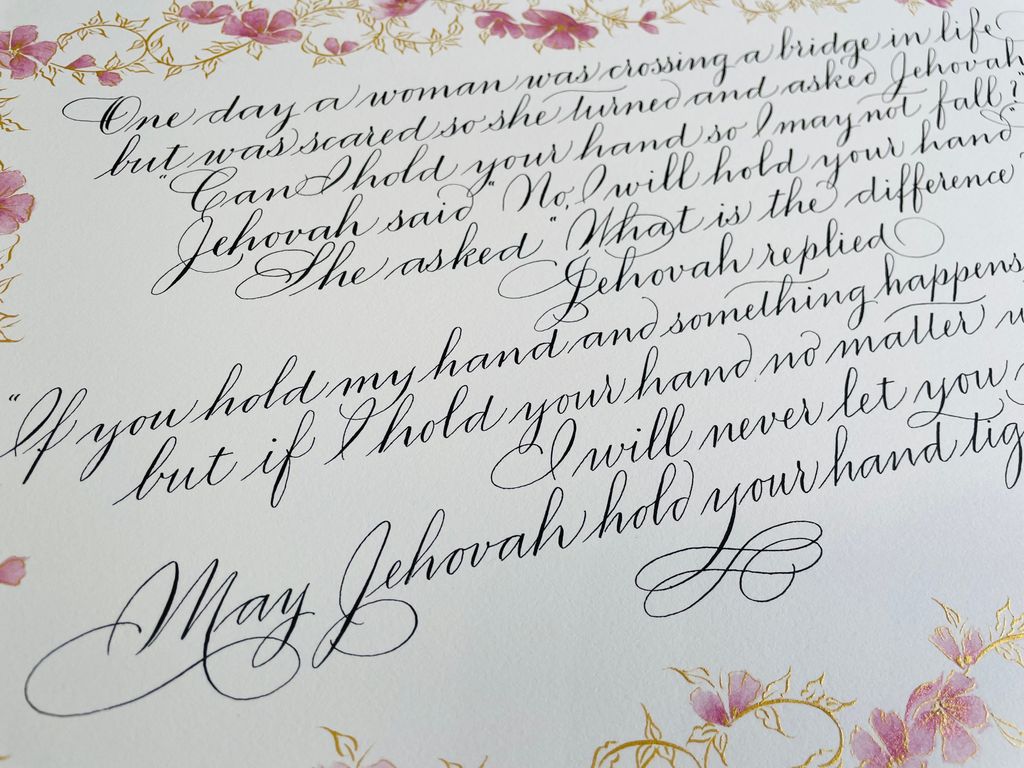 One day a woman was crossing a bridge in life
but was scared so she turned and asked Jehovah
"Can I hold your hand so I may not fall?"
Jehovah said "No, I will hold your hand"
She asked "What is the difference"
Jehovah replied
"If you hold my hand and something happens
but if I hold your hand no matter
I will never let you
May Jehovah hold your hand